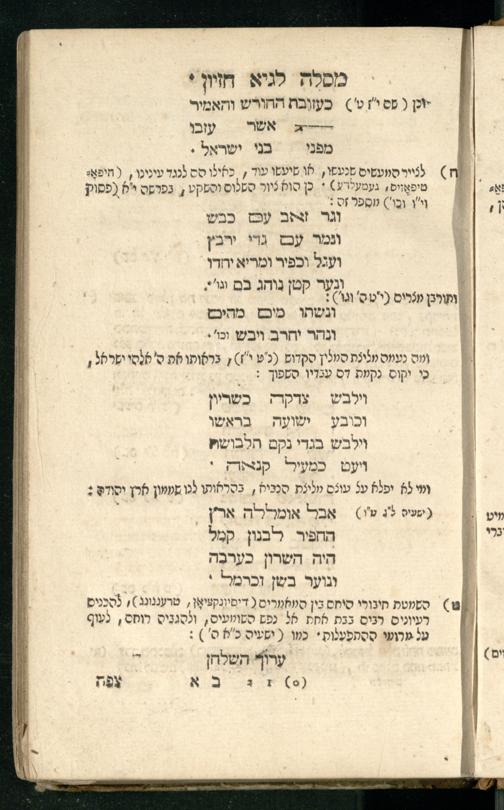 מסלה לגיא חזיון •
וכן (שם י"ז ט') כעזובת החורש והאמיר
אשר עזבו
מפני בני ישראל •
ח) לצייר המעשים שנעשו, או שיעשו עוד, כאילו הם לנגד עינינו, (היפאָ=
טיפאָזיס, געמעלדע) • כן הוא ציור השלום והשקט, בפרשה י"א (פסוק
ו"ו וכו') מספר זה :
וגר זאב עם כבש
ונמר עם גדי ירבץ
ועגל וכפיר ומריא יחדו
ונער קטן נוהג בם וגו' •
וחורבן מצרים (י"ט ה' וגו') :
ונשתו מים מהים
ונהר יחרב ויבש וכו' •
ומה נעמה מליצת המליץ הקדוש (נ"ט י"ז), בראותו את ה' אלהי ישראל,
כי יקום נקמת דם עבדיו השפוך :
וילבש צדקה כשריון
וכובע ישועה בראשו
וילבש בגדי נקם תלבושת
ויעט כמעיל קנאה •
ומי לא יפלא על עוצם מליצת הנביא, בהראותו לנו שממון ארץ יהודה :
(ישעיה ל"ג ט"ו) אבל אומללה ארץ
החפיר לבנון קמל
היה השרון כערבה
ונוער בשן וכרמל •
ט) השמטת חיבורי היחס בין המאמרים (דיסיונקציאָן, טרעננונג), להכניס
רעיונים רבים בבת אחת אל נפש השומעים, ולהגביה רוחם, לעוף
על מרומי ההתפעלות • כמו (ישעיה כ"א ה') :
ערוך השלחן
(ס) ז ג ב א צפה